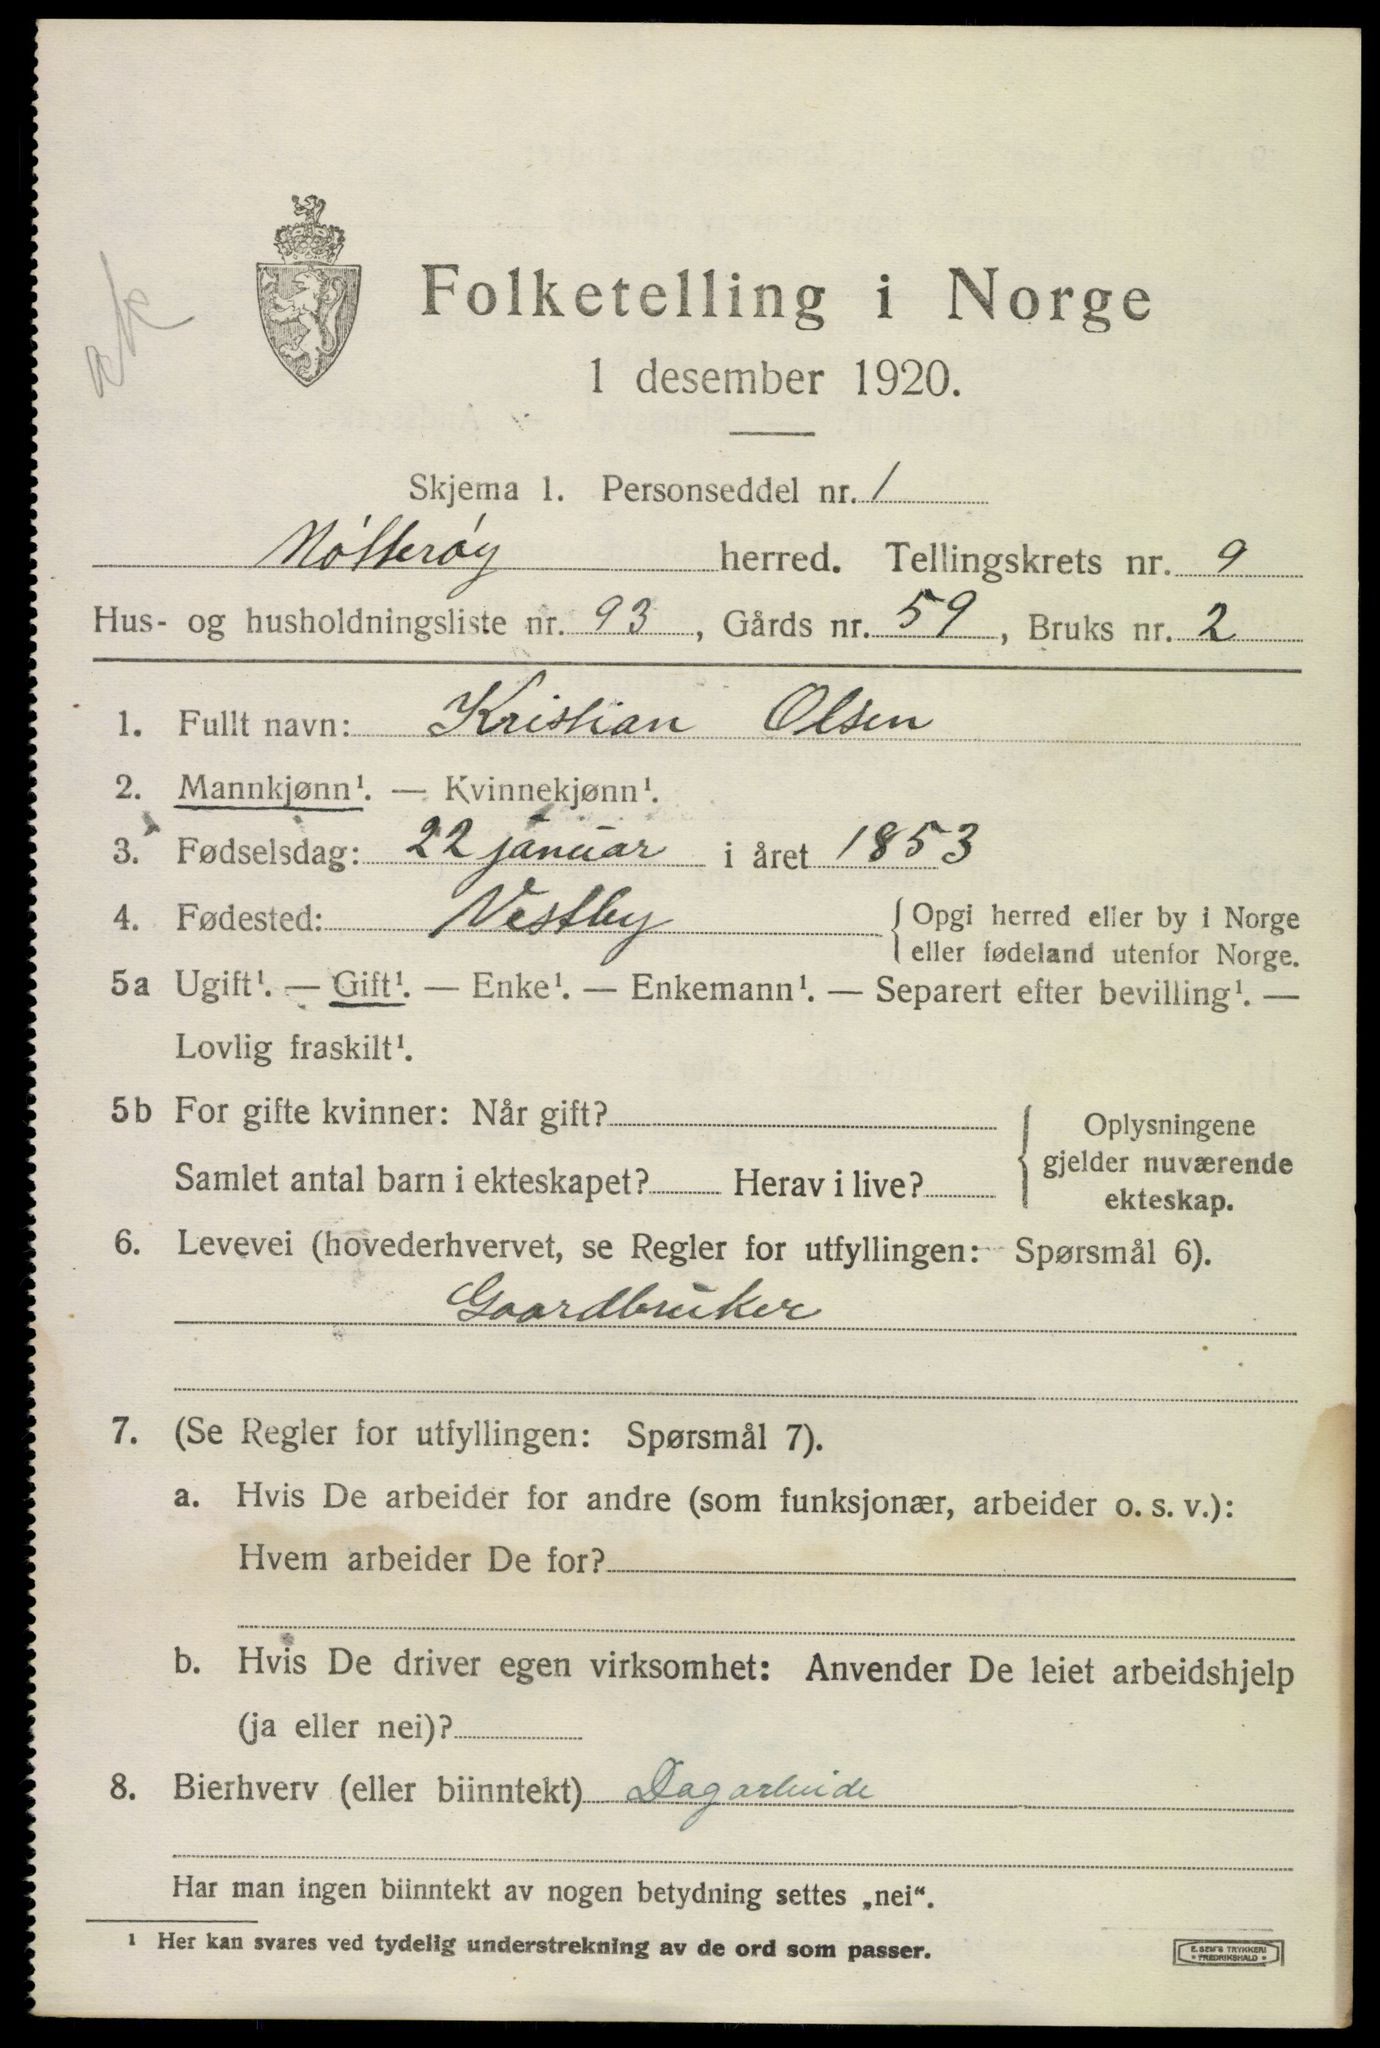 Folketelling i Norge
1 desember 1920.
Skjema 1. Personseddel nr. 1
Nøtterøy herred. Tellingskrets nr. 9
Hus- og husholdningsliste nr. 93, Gårds nr. 59, Bruks nr. 2
1. Fullt navn: Kristian Olsen
2. Mannkjønn¹. — Kvinnekjønn¹.
3. Fødselsdag: 22 januar i året 1853
4. Fødested: Vestby { Opgi herred eller by i Norge
eller fødeland utenfor Norge.
5a Ugift¹. — Gift¹. — Enke¹. — Enkemann¹. — Separert efter bevilling¹. —
Lovlig fraskilt¹.
5b For gifte kvinner: Når gift? { Oplysningene
gjelder nuværende
Samlet antal barn i ekteskapet? Herav i live?
ekteskap.
6. Levevei (hovederhvervet, se Regler for utfyllingen: Spørsmål 6).
Gaardbruker
7. (Se Regler for utfyllingen: Spørsmål 7).
a. Hvis De arbeider for andre (som funksjonær, arbeider o. s. v.):
Hvem arbeider De for?
b. Hvis De driver egen virksomhet: Anvender De leiet arbeidshjelp
(ja eller nei)?
8. Bierhverv (eller biinntekt) Dagarbeide
Har man ingen biinntekt av nogen betydning settes „nei“.
¹ Her kan svares ved tydelig understrekning av de ord som passer.
E. SEM'S TRYKKERI
* FREDRIKSHALD *